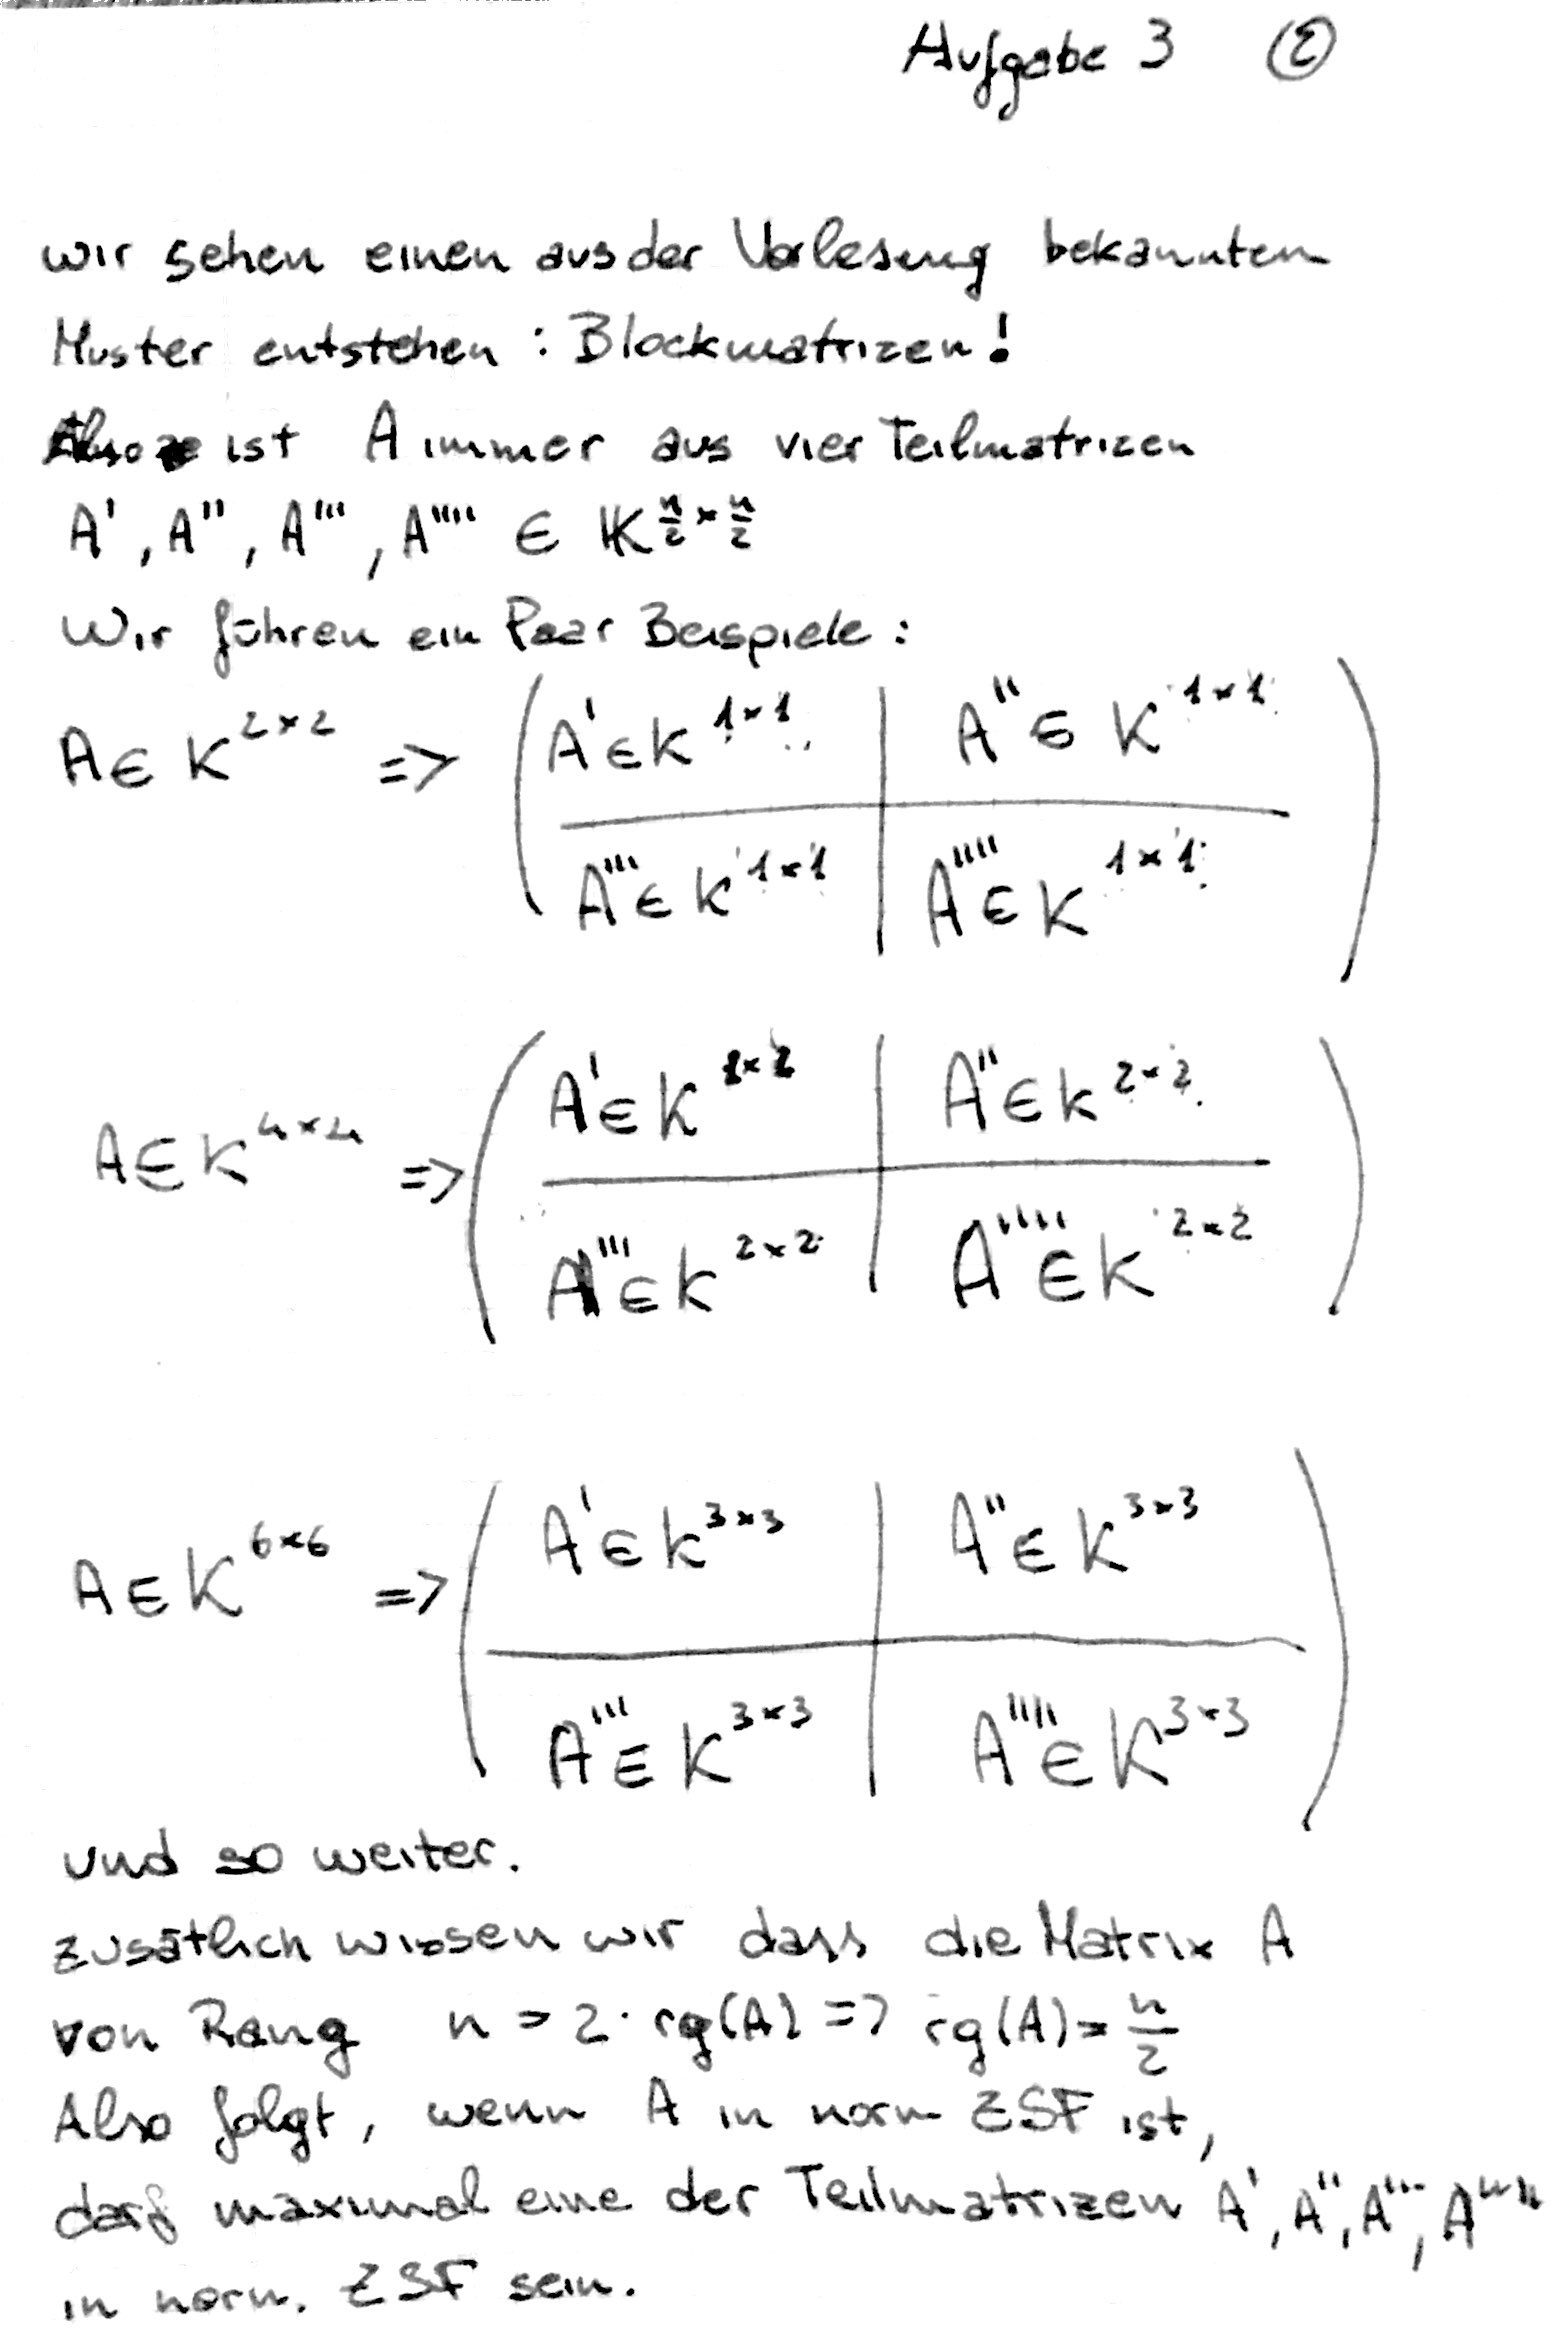 Aufgabe 3 ②
wir sehen einen aus der Vorlesung bekannten
Muster entstehen : Blockmatrizen!
Also ist A immer aus vier Teilmatrizen
A', A'', A''', A'''' ∈ K^{n/2 × n/2}
Wir führen ein Paar Beispiele :
A ∈ K^{2×2} => ( A' ∈ K^{1×1} | A'' ∈ K^{1×1} )
( A''' ∈ K^{1×1} | A'''' ∈ K^{1×1} )
A ∈ K^{4×4} => ( A' ∈ K^{2×2} | A'' ∈ K^{2×2} )
( A''' ∈ K^{2×2} | A''''' ∈ K^{2×2} )
A ∈ K^{6×6} => ( A' ∈ K^{3×3} | A'' ∈ K^{3×3} )
( A''' ∈ K^{3×3} | A'''' ∈ K^{3×3} )
und so weiter.
zusätlich wissen wir dass die Matrix A
von Rang n = 2 · rg(A) => rg(A) = n/2
Also folgt, wenn A in norm ZSF ist,
darf maximal eine der Teilmatrizen A', A'', A''', A''''
in norm. ZSF sein.